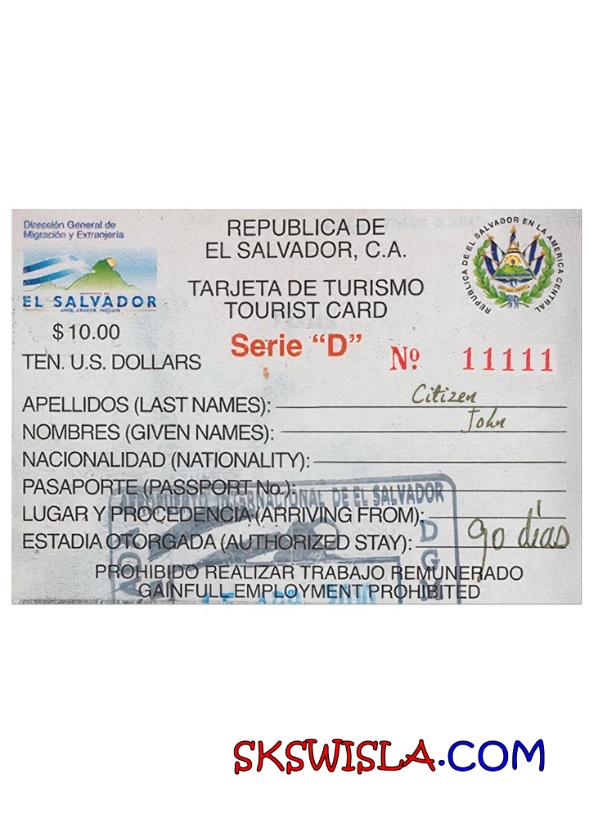 Dirección General de
Migración y Extranjería
EL SALVADOR
$10.00
TEN. U.S. DOLLARS
REPUBLICA DE
EL SALVADOR, C.A.
TARJETA DE TURISMO
TOURIST CARD
Serie “D”
REPUBLICA DE EL SALVADOR EN LA AMERICA CENTRAL
Nº 11111
APELLIDOS (LAST NAMES): Citizen
NOMBRES (GIVEN NAMES): John
NACIONALIDAD (NATIONALITY):
PASAPORTE (PASSPORT No.):
AEROPUERTO INTERNACIONAL DE EL SALVADOR
LUGAR Y PROCEDENCIA (ARRIVING FROM):
ESTADIA OTORGADA (AUTHORIZED STAY): 90 días
PROHIBIDO REALIZAR TRABAJO REMUNERADO
GAINFULL EMPLOYMENT PROHIBITED
SKSWISLA.COM